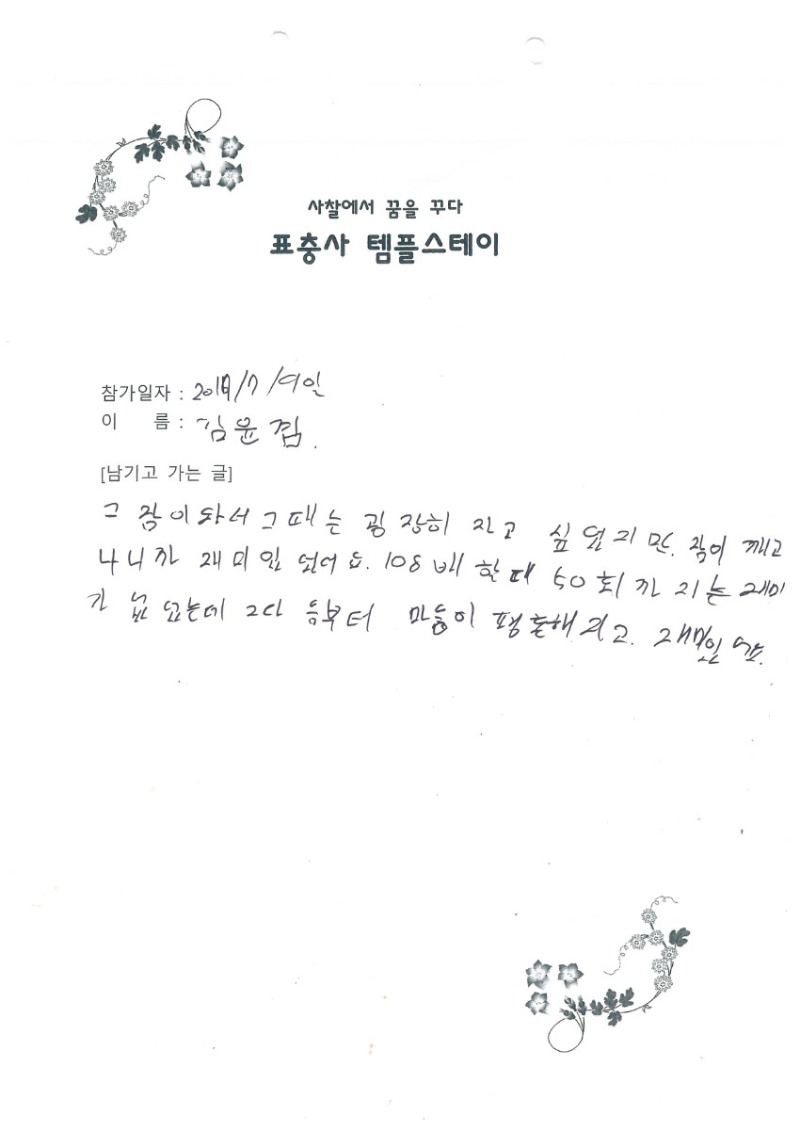 사찰에서 꿈을 꾸다
표충사 템플스테이
참가일자 : 7/19일
이 름 : 김윤겸.
[남기고 가는 글]
그 잠이와서 그때는 굉장히 자고 싶었지만. 잠이 깨고
나니까 재미있었어요. 108배 할때 50회까지는 재미
가 없었는데 그다음부터 마음이 평온해지고. 재미있어요.